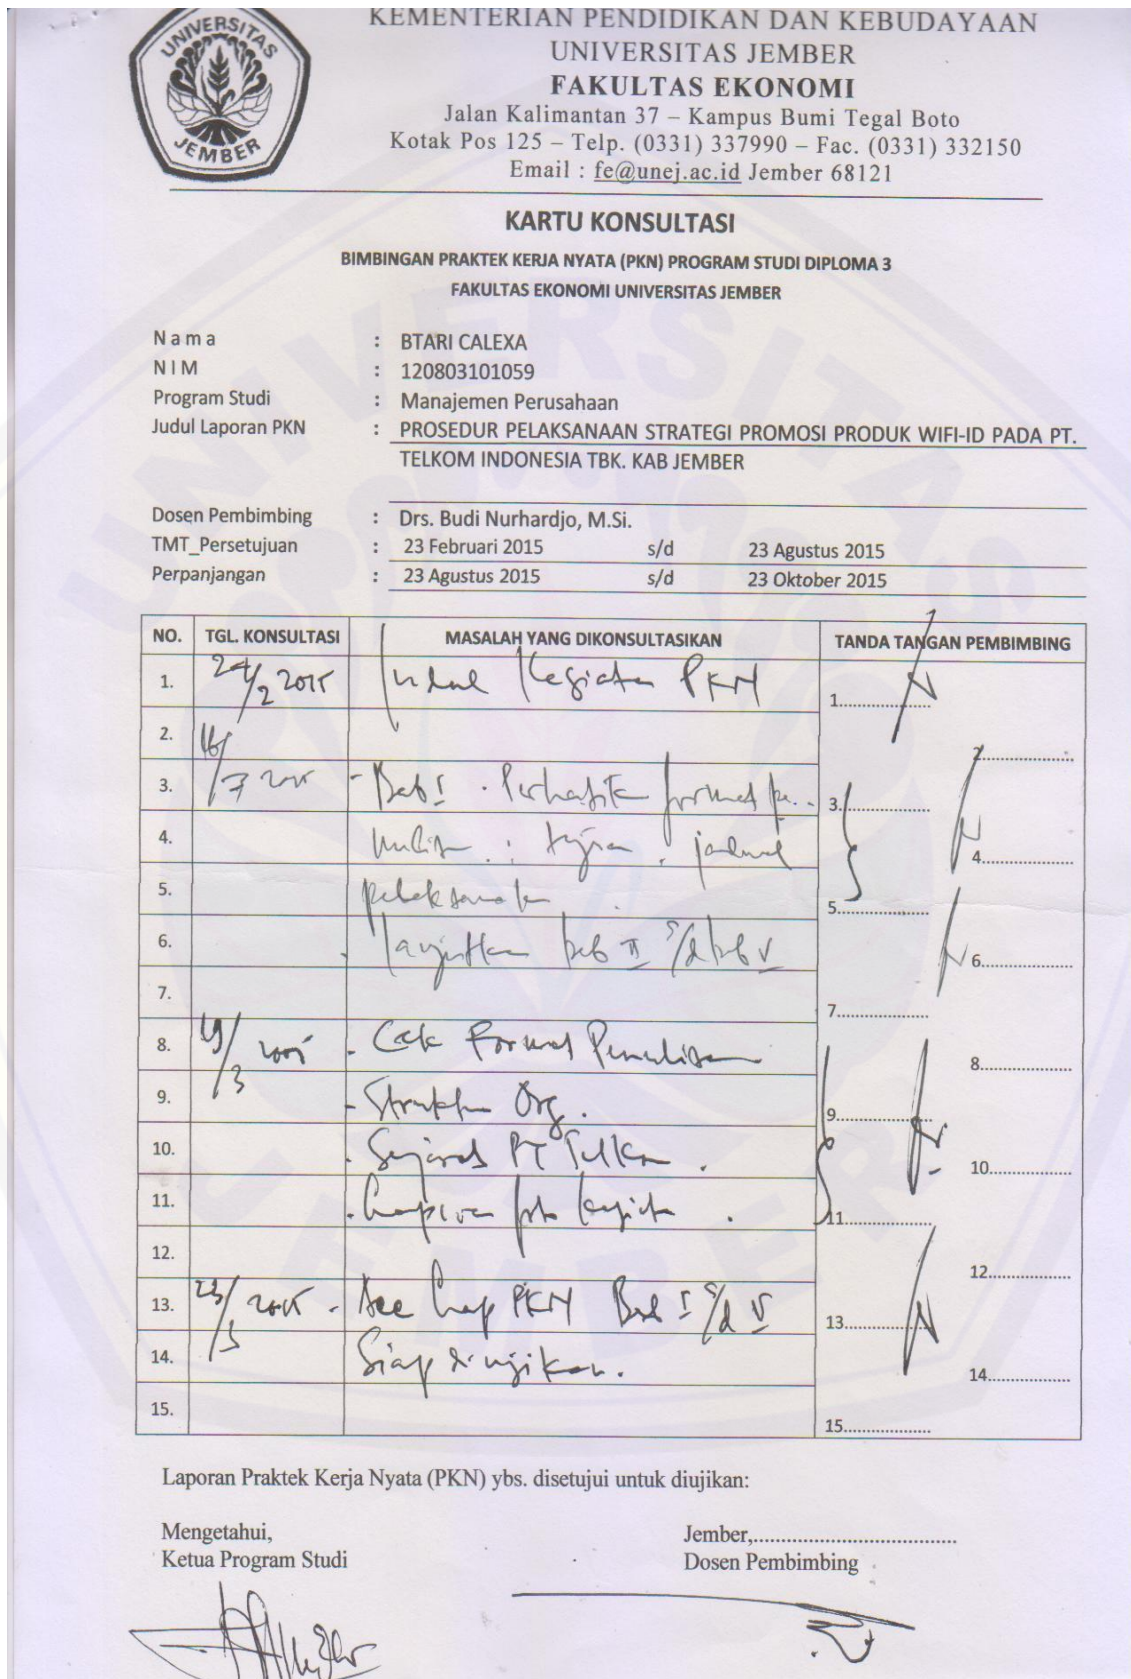 KEMENTERIAN PENDIDIKAN DAN KEBUDAYAAN
UNIVERSITAS JEMBER
FAKULTAS EKONOMI
Jalan Kalimantan 37 – Kampus Bumi Tegal Boto
Kotak Pos 125 – Telp. (0331) 337990 – Fac. (0331) 332150
Email : fe@unej.ac.id Jember 68121
UNIVERSITAS
JEMBER
KARTU KONSULTASI
BIMBINGAN PRAKTEK KERJA NYATA (PKN) PROGRAM STUDI DIPLOMA 3
FAKULTAS EKONOMI UNIVERSITAS JEMBER
N a m a : BTARI CALEXA
N I M : 120803101059
Program Studi : Manajemen Perusahaan
Judul Laporan PKN : PROSEDUR PELAKSANAAN STRATEGI PROMOSI PRODUK WIFI-ID PADA PT.
TELKOM INDONESIA TBK. KAB JEMBER
Dosen Pembimbing : Drs. Budi Nurhardjo, M.Si.
TMT_Persetujuan : 23 Februari 2015 s/d 23 Agustus 2015
Perpanjangan : 23 Agustus 2015 s/d 23 Oktober 2015
NO. TGL. KONSULTASI MASALAH YANG DIKONSULTASIKAN TANDA TANGAN PEMBIMBING
1. 2015 Kegiatan PKN 1..................
2. 2..................
3. - Bab I . format pe.. 3..................
4. jadwal 4..................
5. pelaksanaan 5..................
6. lanjutkan bab II s/d bab V 6..................
7. 7..................
8. - Cek Format Penulisan 8..................
9. - Struktur Org. 9..................
10. - Sejarah PT Telkom . 10..................
11. 11..................
12. 12..................
13. 23/3 2015 - Acc Lap PKN Bab I s/d V 13..................
14. Siap diujikan. 14..................
15. 15..................
Laporan Praktek Kerja Nyata (PKN) ybs. disetujui untuk diujikan:
Mengetahui, Jember,....................................
Ketua Program Studi Dosen Pembimbing